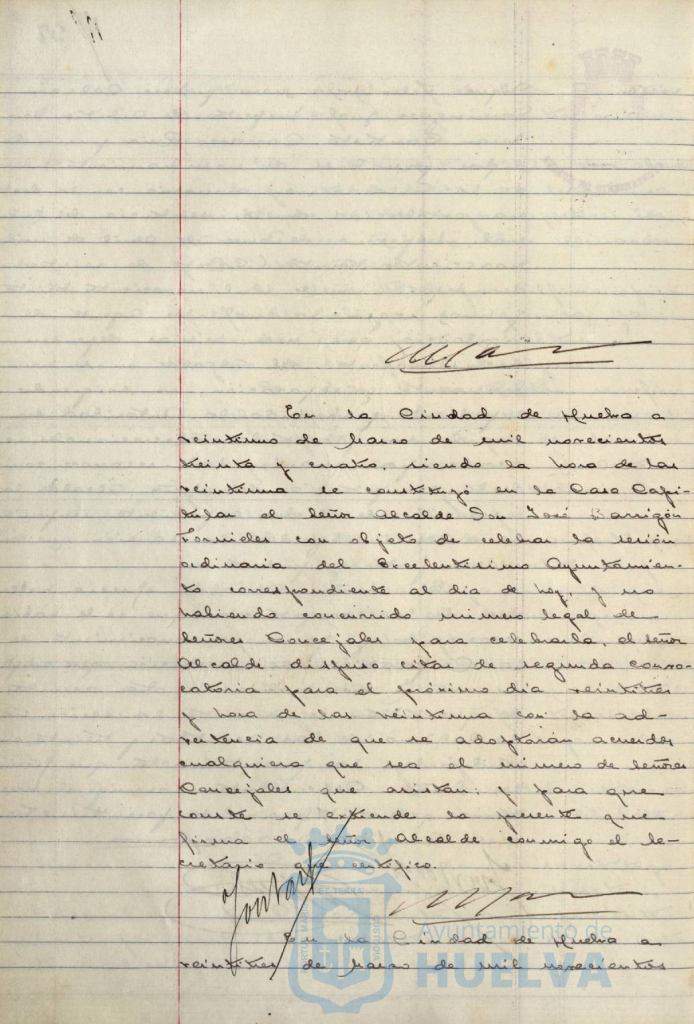 En la Ciudad de Huelva a
veintiuno de Marzo de mil novecientos
treinta y cuatro, siendo la hora de las
veintiuna se constituyó en la Casa Capi-
tular el Señor Alcalde Don José Barrigón
Fornieles con objeto de celebrar la sesión
ordinaria del Excelentísimo Ayuntamien-
to correspondiente al dia de hoy, y no
habiendo concurrido número legal de
Señores Concejales para celebrarla, el señor
Alcalde dispuso citar de segunda convo-
catoria para el próximo dia veintitres
y hora de las veintiuna con la ad-
vertencia de que se adoptarán acuerdos
cualquiera que sea el número de Señores
Concejales que asistan; y para que
conste se extiende la presente que
firma el Señor Alcalde conmigo el Se-
cretario que certifico.
En la Ciudad de Huelva a
veintitres de Marzo de mil novecientos
Ayuntamiento de
HUELVA